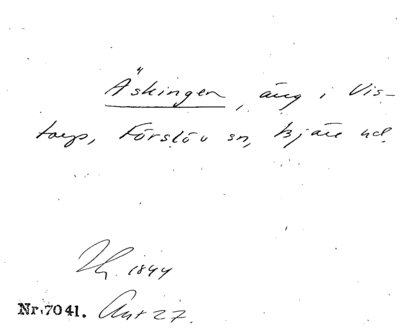 Äskingen, äng i Vis-
torp, Förslöv sn, Bjäre hd.
1844
Nr. 7041. Ant 27.